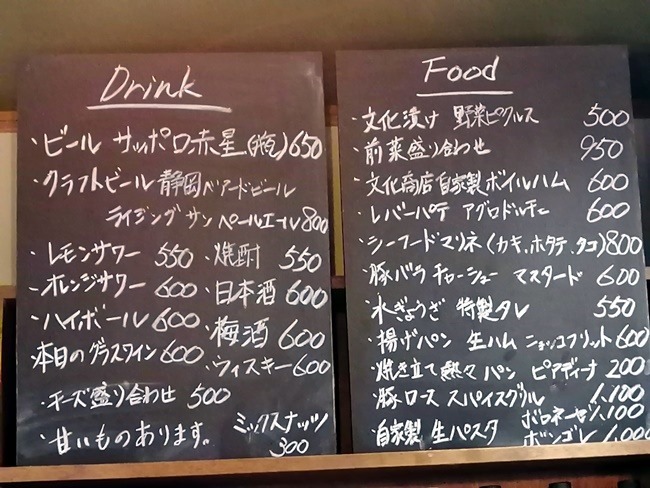 Drink
・ビール サッポロ赤星(中瓶)650
・クラフトビール 静岡ベアードビール
ライジング サン ペールエール 800
・レモンサワー 550
・オレンジサワー 600
・ハイボール 600
本日のグラスワイン 600
・焼酎 550
・日本酒 600
・梅酒 600
・ウィスキー 600
・チーズ盛り合わせ 500
・甘いものあります。
ミックスナッツ
300
Food
・文化漬け 野菜ピクルス 500
・前菜盛り合わせ 950
・文化商店自家製ボイルハム 600
・レバーパテ アグロドルチェ 600
・シーフードマリネ(カキ、ホタテ、タコ)800
・豚バラ チャーシュー マスタード 600
・水ぎょうざ 特製タレ 550
・揚げパン 生ハム ニョッコフリット 600
・焼き立て熱々パン ピアディーナ 200
・豚ロース スパイスグリル 1.100
・自家製 生パスタ
ボロネーゼ 1.100
ボンゴレ 1.000